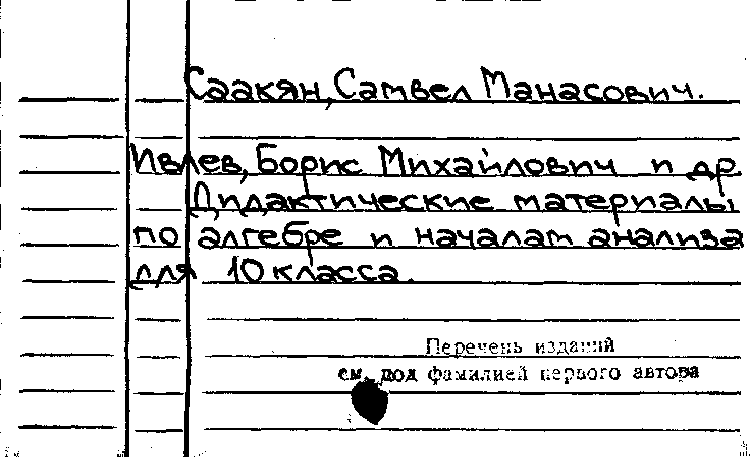 Саакян, Самвел Манасович.
Ивлев, Борис Михайлович и др.
Дидактические материалы
по алгебре и началам анализа
для 10 класса.
Перечень изданий
см. под фамилией первого автора